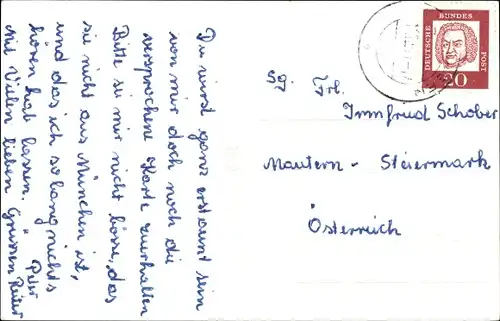 Du wirst ganz erstaunt sein
von mir doch noch die
versprochene Karte zuerhalten
Bitte sei mir nicht böse, das
sie nicht aus München ist,
und das ich so lang nichts
hören hab lassen.
Mit Vielen lieben Grüssen
Peter
DEUTSCHE BUNDESPOST
20
Sg. Frl.
Irmfried Schober
Mautern - Steiermark
Österreich